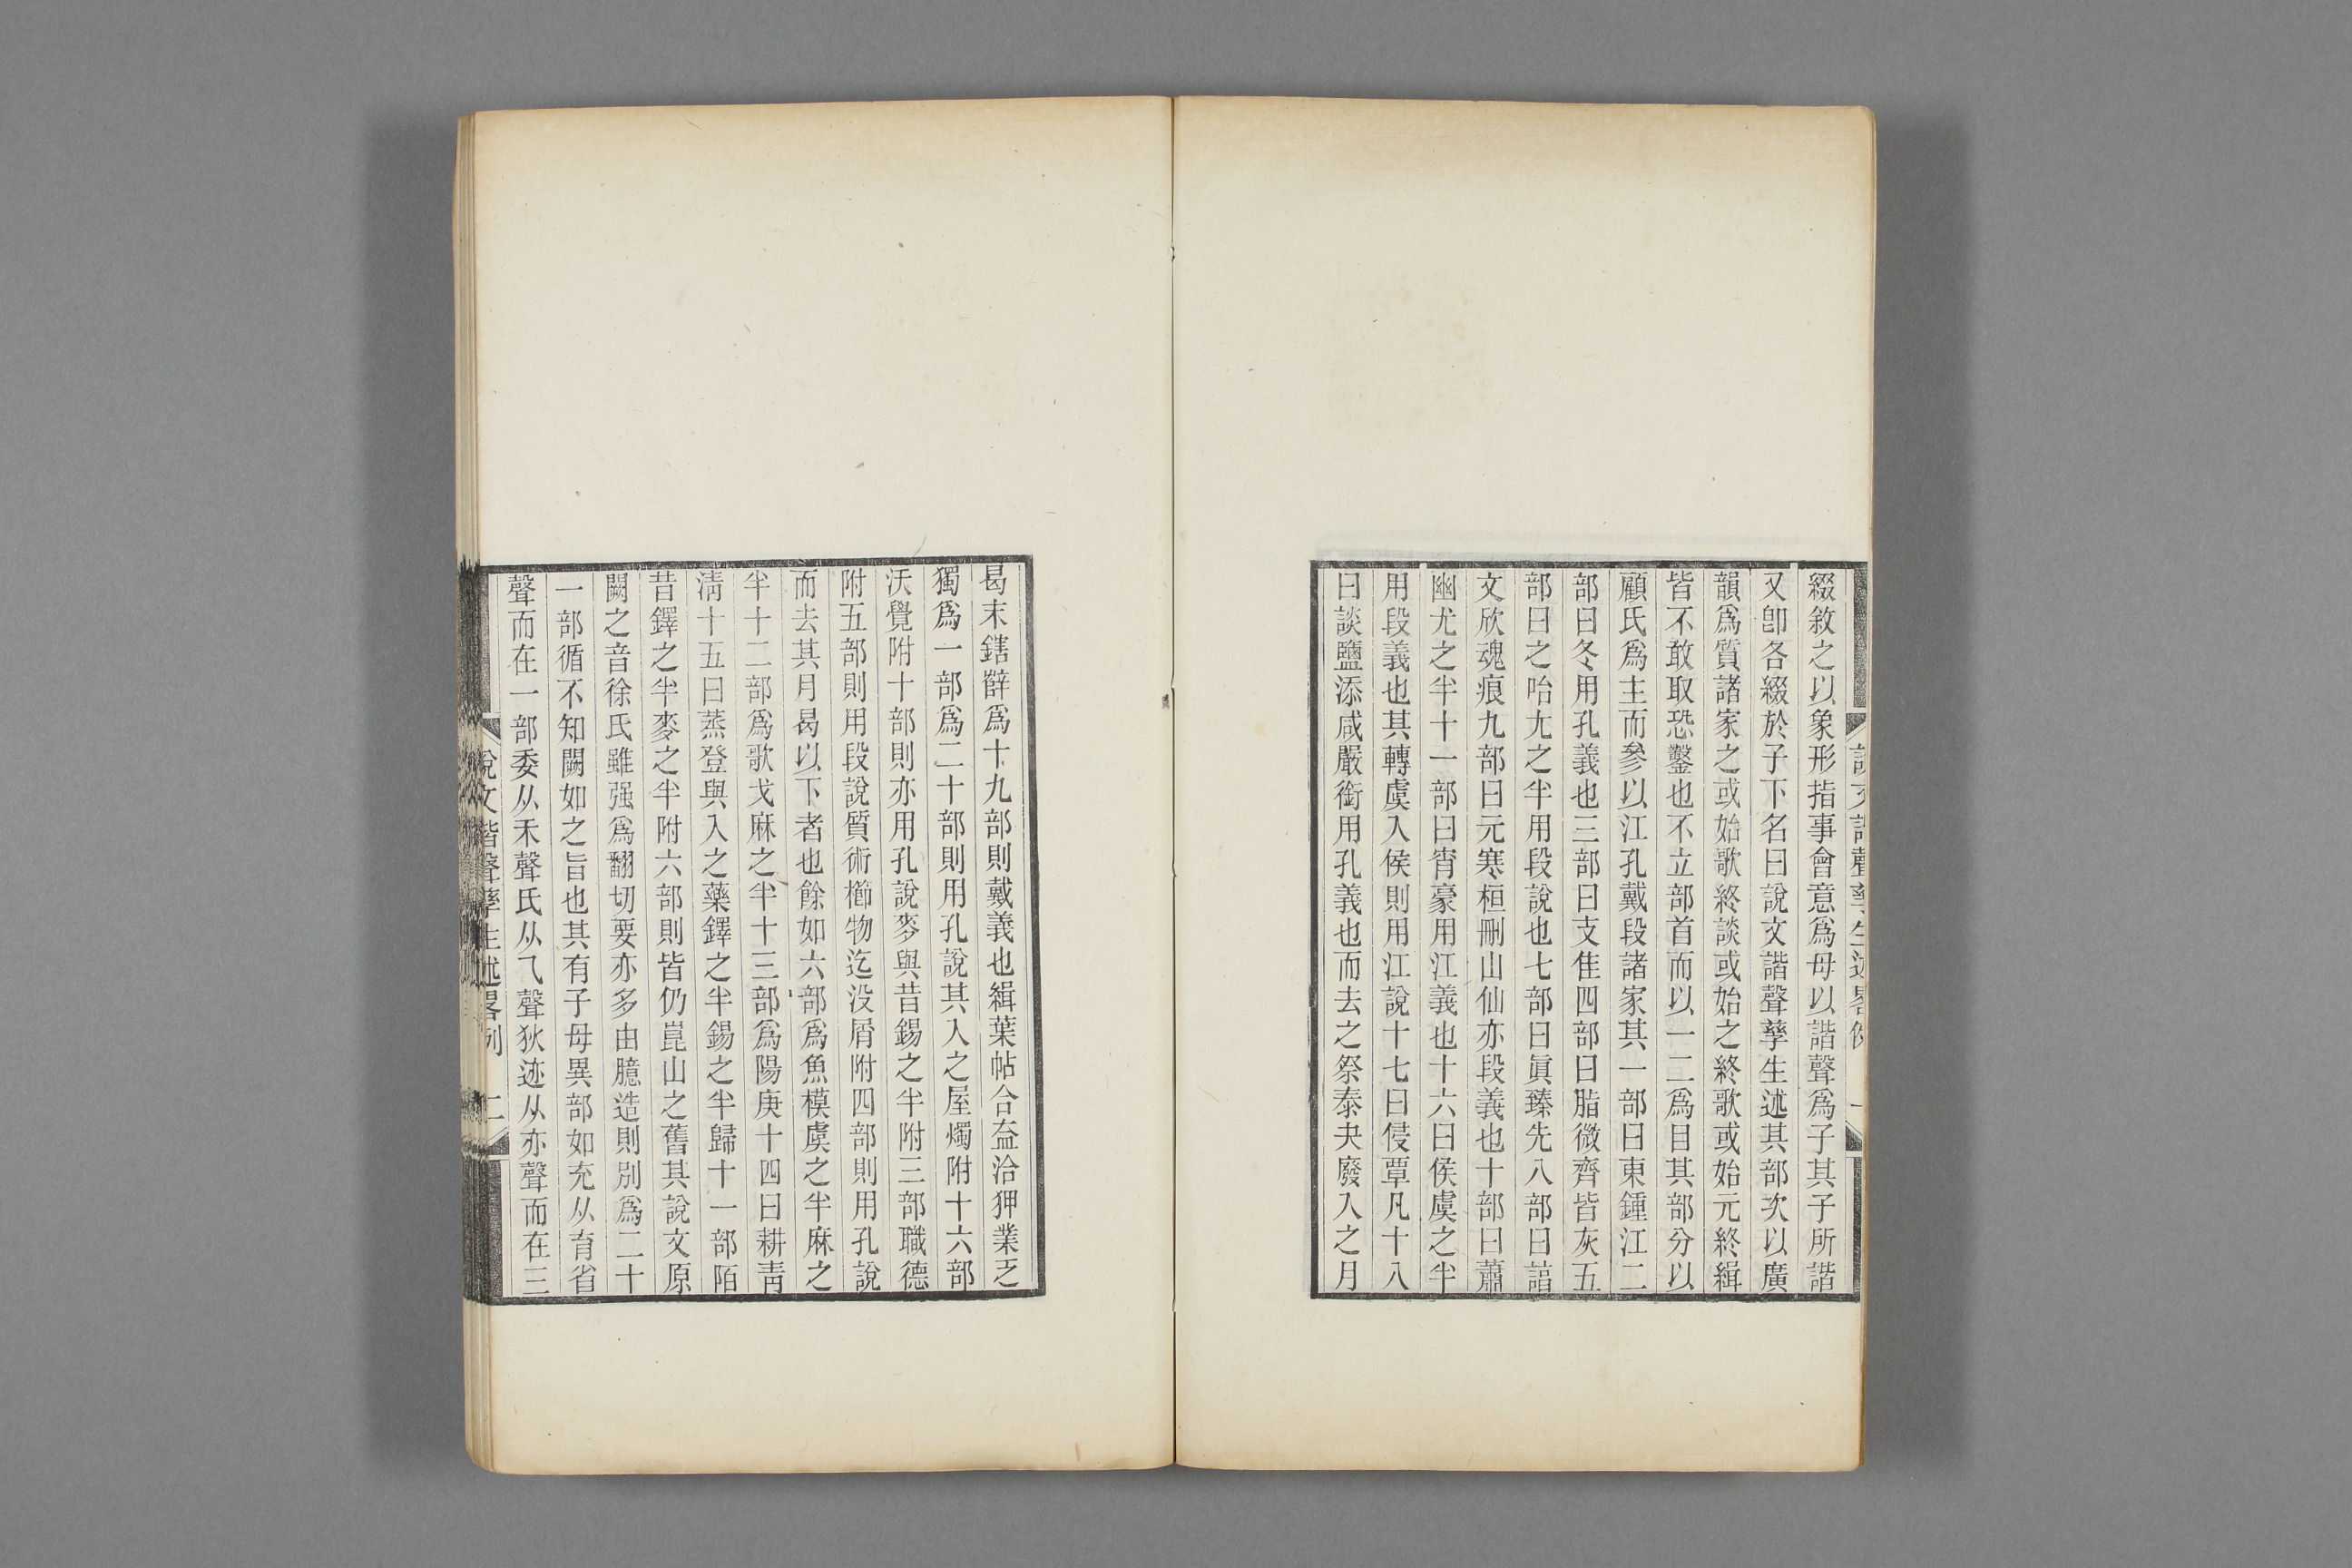 綴敘之以象形指事會意爲母以諧聲爲子其子所諧
又卽各綴於子下名曰說文諧聲孳生述其部次以廣
韻爲質諸家之或始歌終談或始之終歌或始元終緝
皆不敢取恐鑿也不立部首而以一二爲目其部分以
顧氏爲主而參以江孔戴段諸家其一部曰東鍾江二
部曰冬用孔義也三部曰支佳四部曰脂微齊皆灰五
部曰之咍尤之半用段說也七部曰眞臻先八部曰諄
文欣魂痕九部曰元寒桓刪山仙亦段義也十部曰蕭
幽尤之半十一部曰宵豪用江義也十六曰侯虞之半
用段義也其轉虞入侯則用江說十七曰侵覃凡十八
曰談鹽添咸嚴銜用孔義也而去之祭泰夬廢入之月
曷末鎋辥爲十九部則戴義也緝葉帖合盍洽狎業乏
獨爲一部爲二十部則用孔說其入之屋燭附十六部
沃覺附十部則亦用孔說麥與昔錫之半附三部職德
附五部則用段說質術櫛物迄没屑附四部則用孔說
而去其月曷以下者也餘如六部爲魚模虞之半麻之
半十二部爲歌戈麻之半十三部爲陽庚十四曰耕青
淸十五曰蒸登與入之藥鐸之半錫之半歸十一部陌
昔鐸之半麥之半附六部則皆仍崑山之舊其說文原
闕之音徐氏雖强爲翻切要亦多由臆造則別爲二十
一部循不知闕如之旨也其有子母異部如充从育省
聲而在一部委从禾聲氏从乁聲狄迹从亦聲而在三
說文諧聲孳生述畧例 二